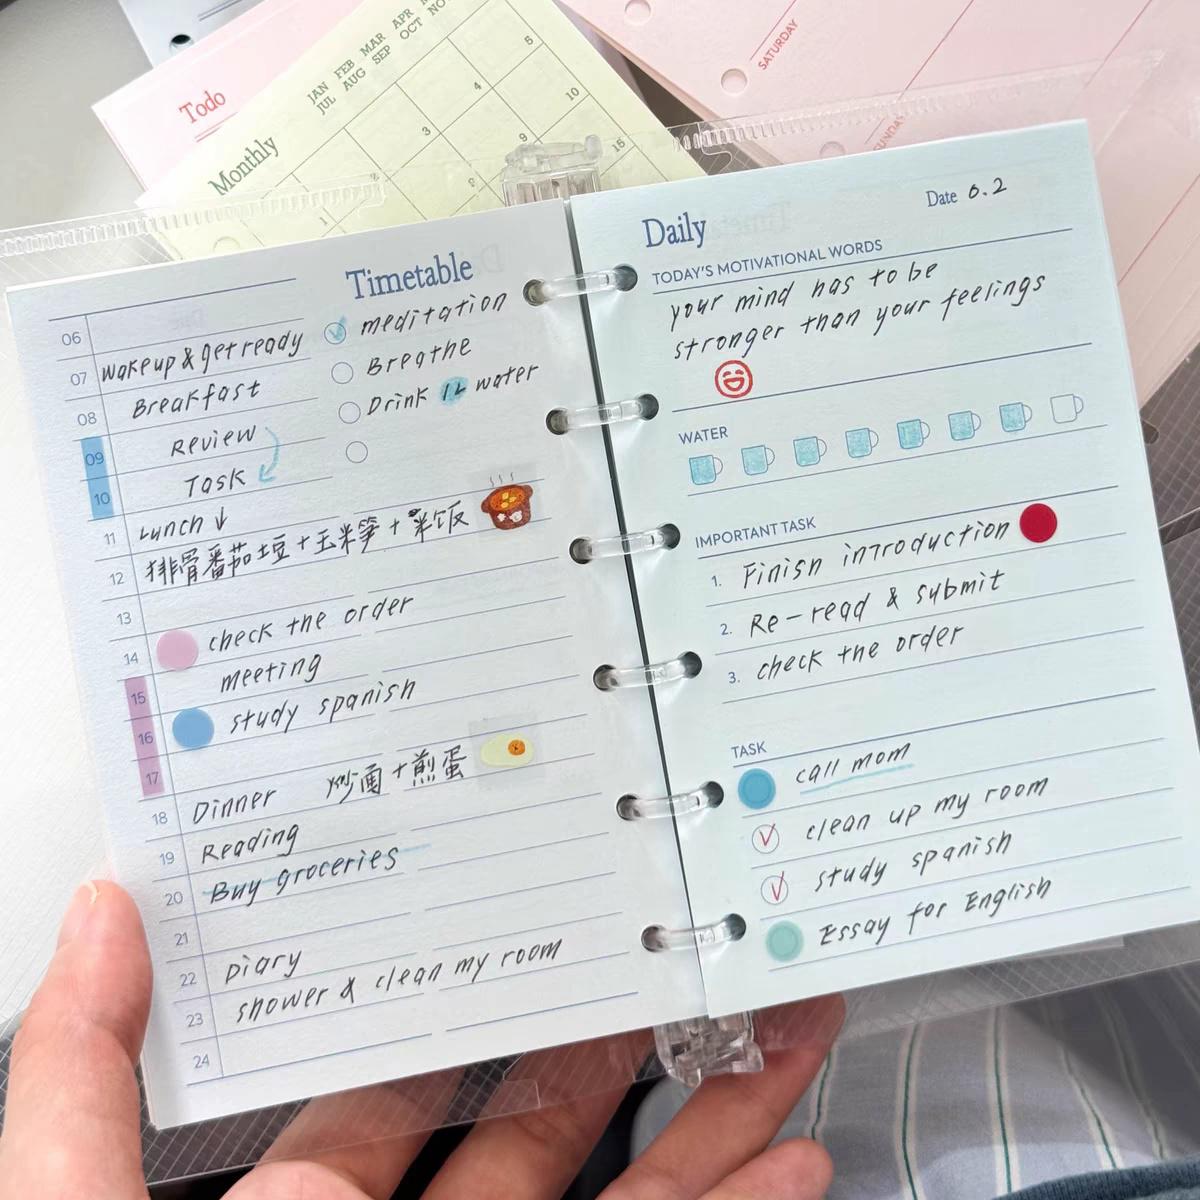 Todo
Monthly
JAN FEB MAR APR
JUL AUG SEP OCT NO
5
4
10
3
9
15
1
SATURDAY
SUNDAY
Timetable
06
wake up & get ready
07
Breakfast
08
Review
09
Task
10
Lunch ↓
11
排骨番茄土豆+玉米笋+米饭
12
13
check the order
14
meeting
15
study spanish
16
17
Dinner 炒面+煎蛋
18
Reading
19
Buy groceries
20
21
Diary
22
shower & clean my room
23
24
meditation
Breathe
Drink 1L water
Daily
Date 6.2
TODAY'S MOTIVATIONAL WORDS
your mind has to be
stronger than your feelings
WATER
IMPORTANT TASK
1. Finish introduction
2. Re-read & submit
3. check the order
TASK
call mom
clean up my room
study spanish
Essay for English